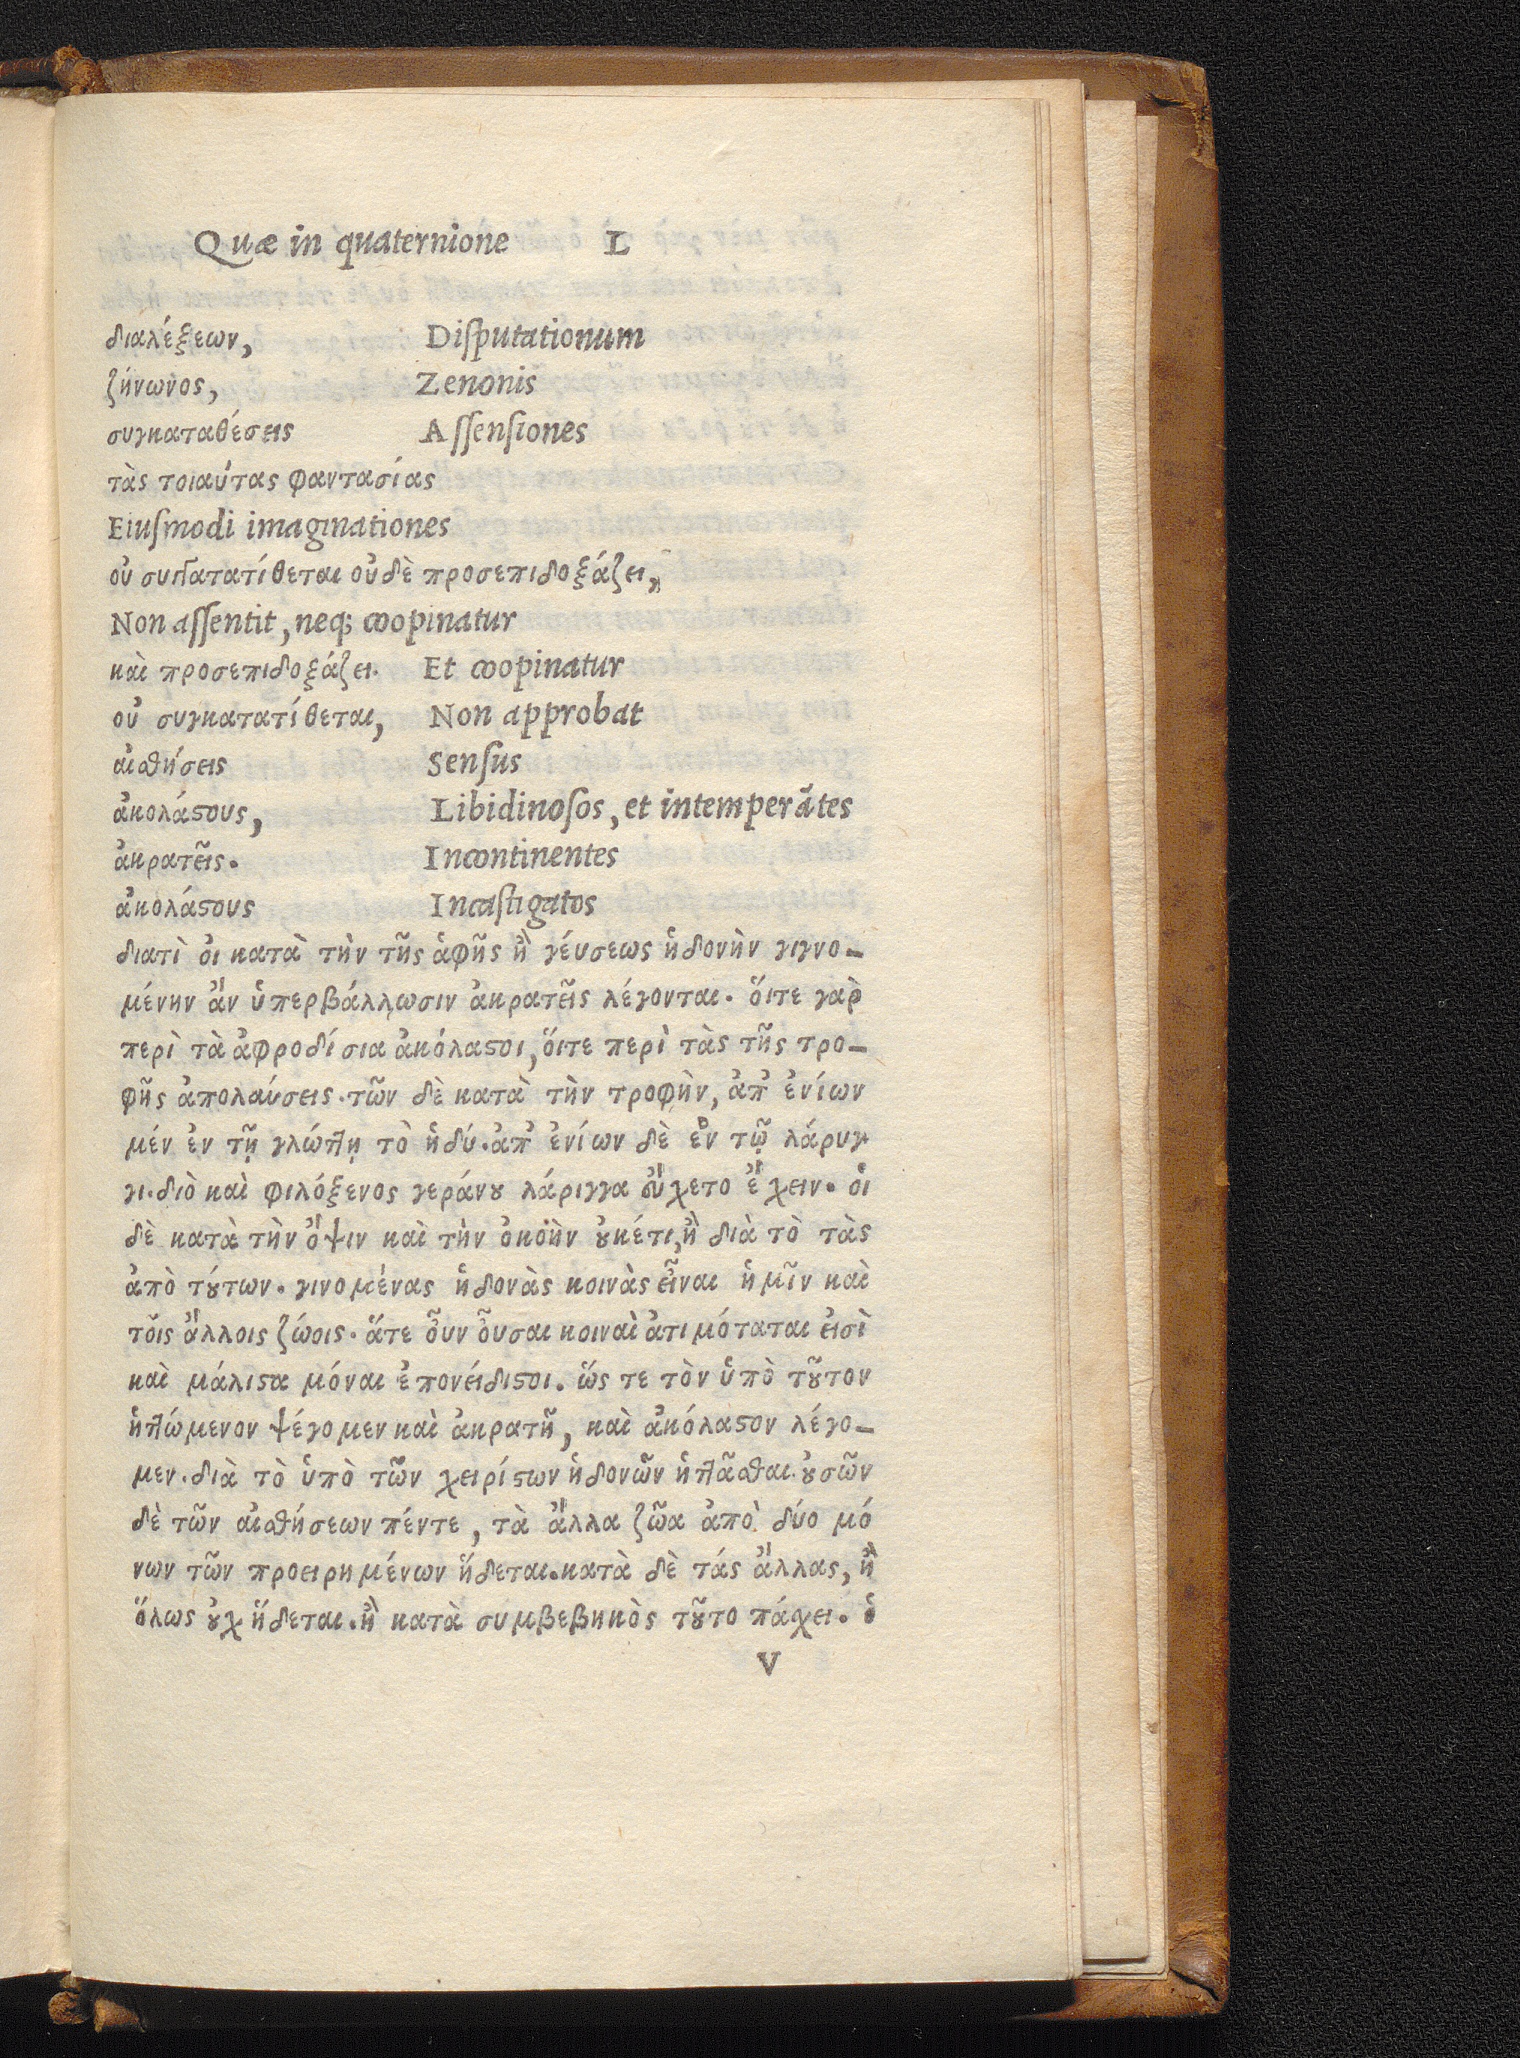 Quæ in quaternione L
διαλέξεων, Diſputationum
ζήνωνος, Zenonis
συγκαταθέσεις Aſſenſiones
τὰς τοιαύτας φαντασίας
Eiuſmodi imaginationes
οὐ συγκατατίθεται οὐδὲ προσεπιδοξάζει,
Non aſſentit, neq; coopinatur
καὶ προσεπιδοξάζει. Et coopinatur
οὐ συγκατατίθεται, Non approbat
αἰσθήσεις Senſus
ἀκολάϛους, Libidinoſos, et intemperātes
ἀκρατεῖς. Incontinentes
ἀκολάϛους Incaſtigatos
διατὶ οἱ κατὰ τὴν τῆς ἁφῆς ἢ γεύσεως ἡδονὴν γιγνο-
μένην ἂν ὑπερβάλλωσιν ἀκρατεῖς λέγονται. ὅιτε γαρ
περὶ τὰ ἀφροδίσια ἀκόλαϛοι, ὅιτε περὶ τὰς τῆς τρο-
φῆς ἀπολαύσεις. τῶν δὲ κατὰ τὴν τροφὴν, ἀπ' ἐνίων
μέν ἐν τῇ γλώττῃ τὸ ἡδύ. ἀπ' ἐνίων δὲ ἐν τῷ λάρυγ
γι. διὸ καὶ φιλόξενος γεράνȣ λάριγγα ἠύχετο ἔχειν. ὁι
δὲ κατὰ τὴν ὄψιν καὶ τὴν ὀκοὴν ȣκέτι, ἢ διὰ τὸ τὰς
ἀπὸ τȣ́των. γινομένας ἡδονὰς κοινὰς εἶναι ἡμῖν καὶ
τοῖς ἄλλοις ζώοις. ἅτε οὖν οὖσαι κοιναὶ ἀτιμόταται εἰσὶ
καὶ μάλιϛα μόναι ἐπονείδιϛοι. ὥς τε τὸν ὑπὸ τȣ͂τον
ἡττώμενον ψέγομεν καὶ ἀκρατῆ, καὶ ἀκόλαϛον λέγο-
μεν. διὰ τὸ ὑπὸ τῶν χειρίϛων ἡδονῶν ἡττᾶσθαι. ȣσῶν
δὲ τῶν αἰσθήσεων πέντε, τὰ ἄλλα ζῶα ἀπὸ δύο μό
νων τῶν προειρημένων ἥδεται. κατὰ δὲ τάς ἄλλας, ἢ
ὅλως ȣχ ἥδεται. ἢ κατὰ συμβεβηκὸς τȣ͂το πάχει. ὁ
V